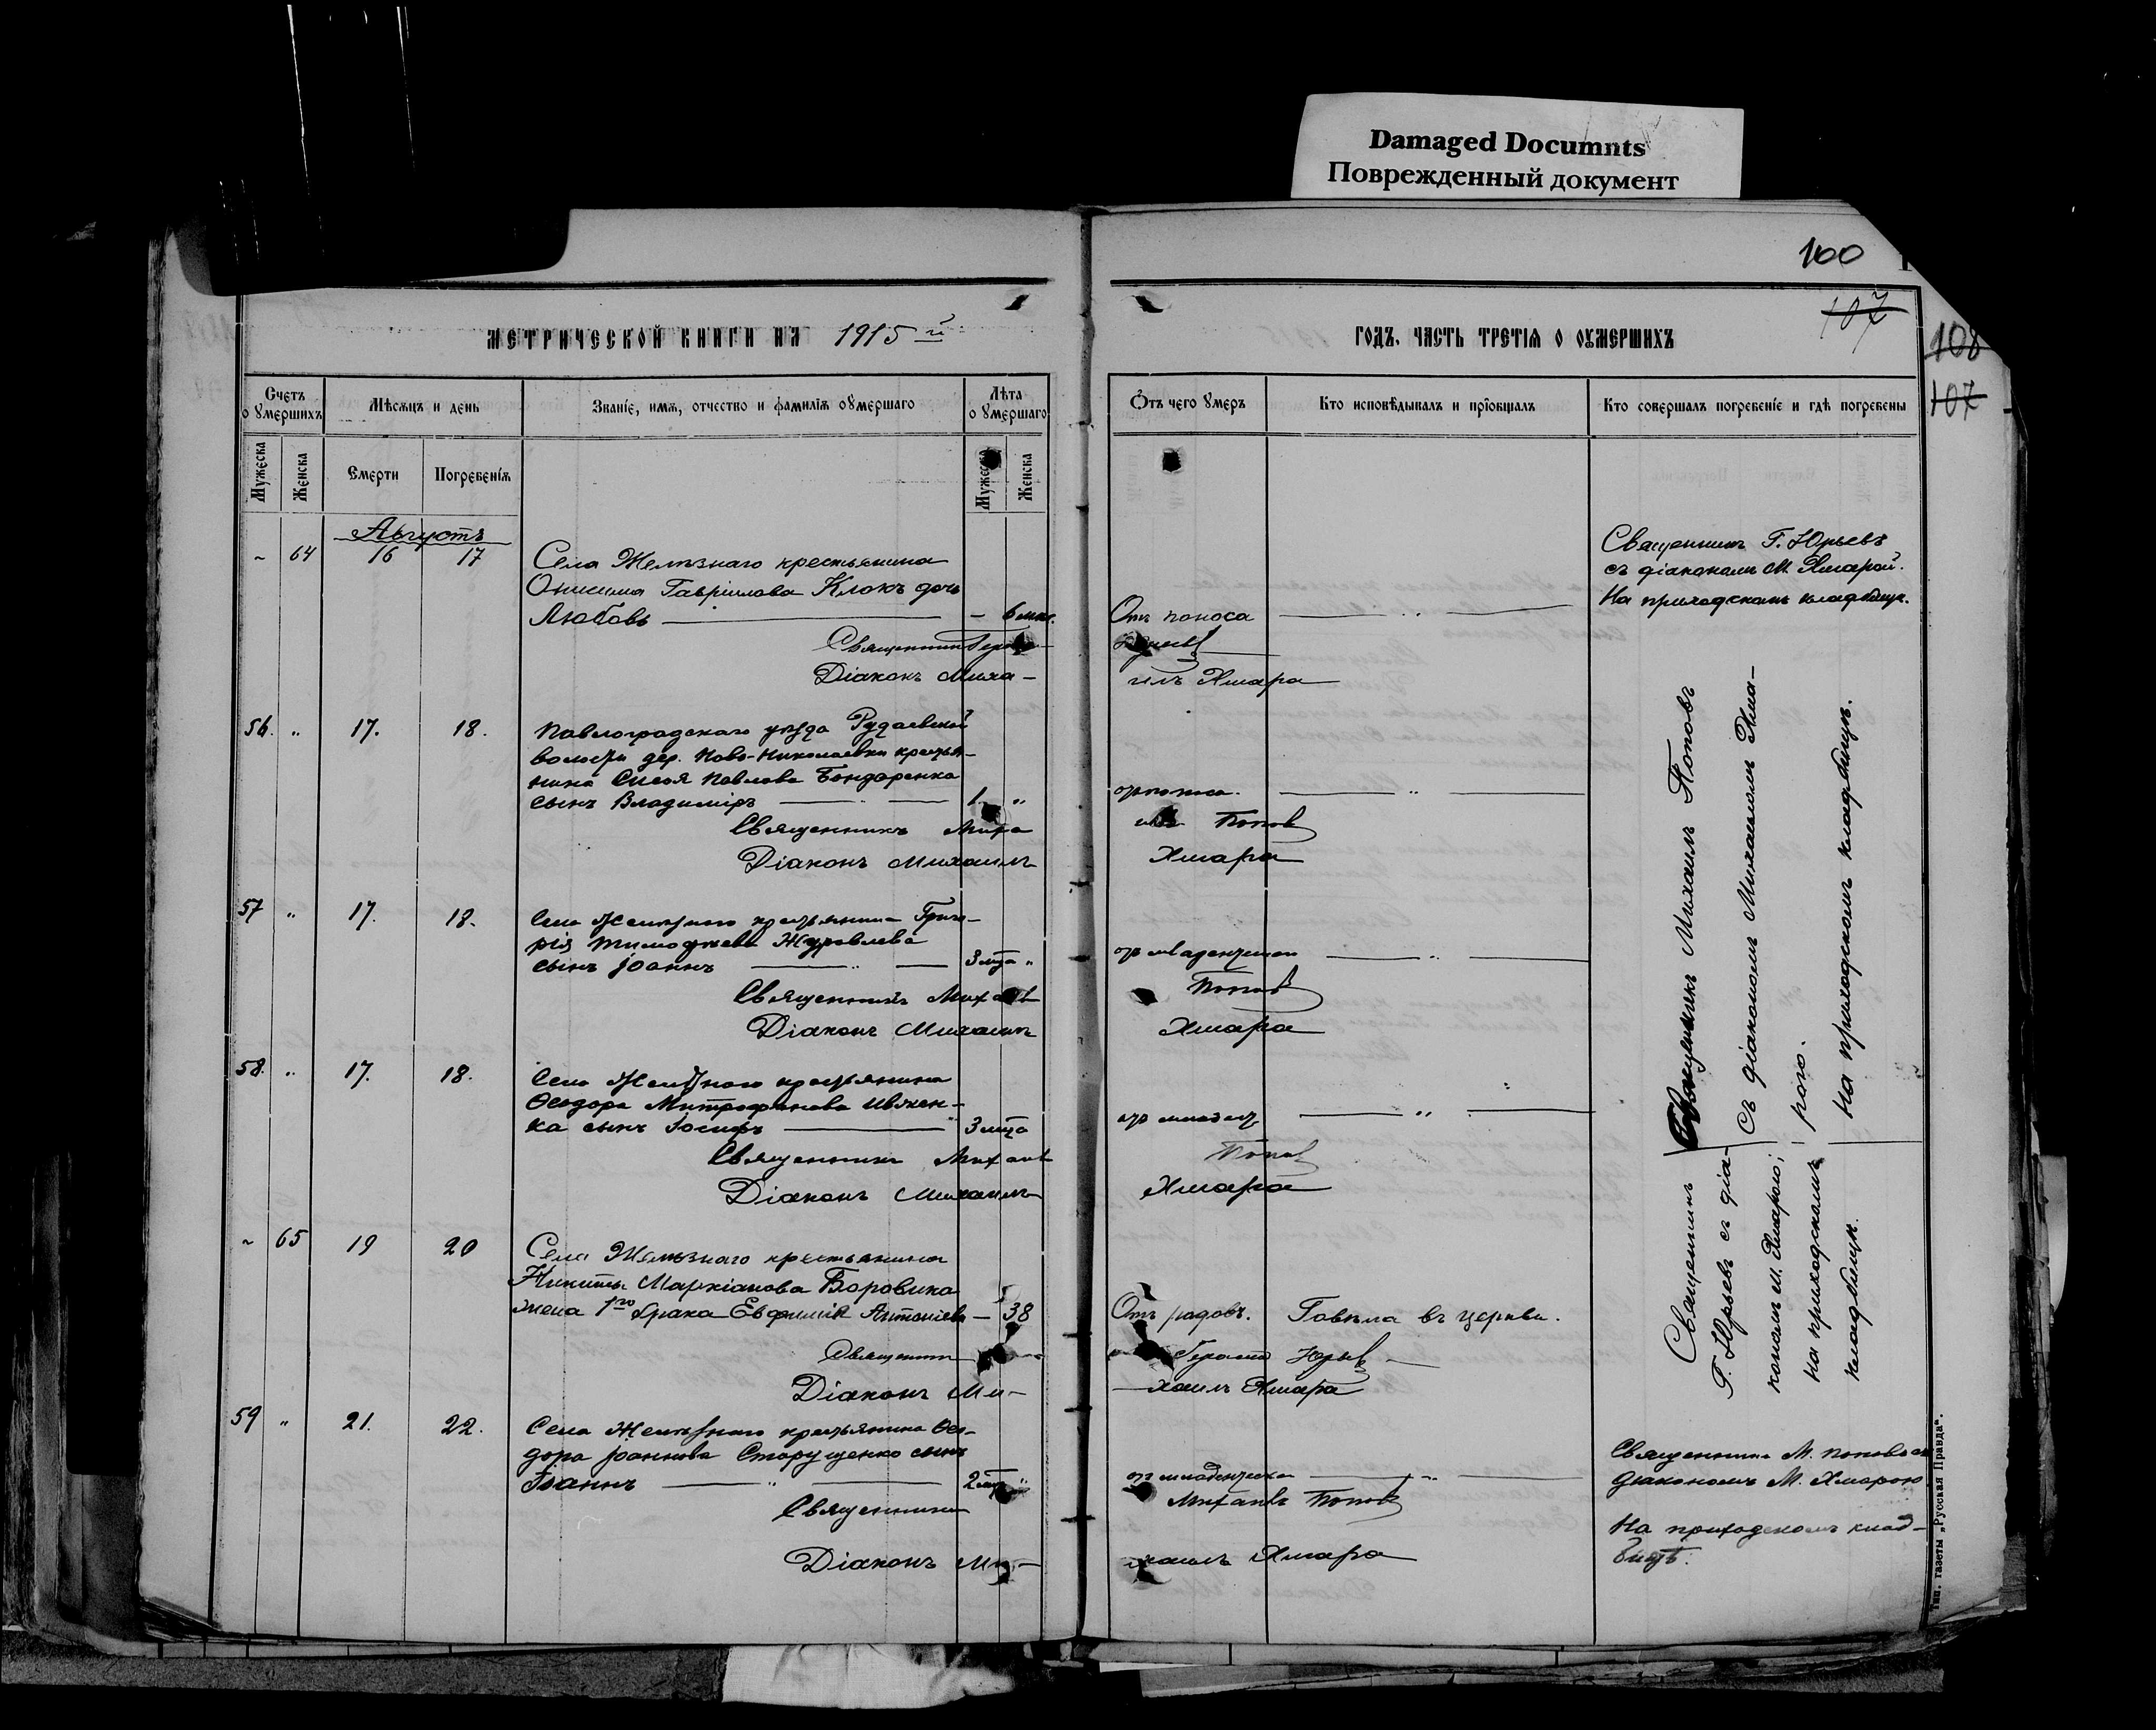 Damaged Documnts
Поврежденный документ
100
107
108
107
МЕТРИЧЕСКОЙ КНИГИ НА 1915 й
ГОДЪ. ЧАСТЬ ТРЕТІЯ О ОУМЕРШИХЪ
Счетъ о умершихъ
Мѣсяцъ и день
Званіе, имя, отчество и фамилія оумершаго
Лѣта о умершаго
Отъ чего умеръ
Кто исповѣдывалъ и пріобщалъ
Кто совершалъ погребеніе и гдѣ погребены
Мужеска
Женска
Смерти
Погребенія
Мужеска
Женска
Августъ
~ 64 16 17
Села Желѣзнаго крестьянина
Онисима Гавріилова Клокъ дочь
Любовь — - 6 мѣс.
Отъ поноса
Священникъ
Діаконъ Миха-
илъ Хмара
Священникъ Г. Юрьевъ
съ діакономъ М. Хмарой.
На приходскомъ кладбищѣ.
56. „ 17. 18.
Павлоградскаго уѣзда
волости дер. Ново-Николаевки крестья-
нина Сисоя Павлова Бондаренка
сынъ Владиміръ — 1. „
Священникъ Миха
илъ Попов
Діаконъ Михаилъ
Хмара
57 „ 17. 18.
Села Желѣзнаго крестьянина Григо-
рія Тимофеева Журавлева
сынъ Іоаннъ — 3 мѣся „
от младенческ
Священникъ Михаилъ
Попов
Діаконъ Михаилъ
Хмара
58. „ 17. 18.
Села Желѣзнаго крестьянина
Ѳеодора Митрофанова Ивахен-
ка сынъ Іосифъ — 3 мѣся
от младен
Священникъ Михаилъ
Попов
Діаконъ Михаилъ
Хмара
Священникъ Михаилъ Поповъ
Съ діакономъ Михаиломъ Хма-
рою.
На приходскомъ кладбищѣ.
~ 65 19 20
Села Желѣзнаго крестьянина
Никиты Маркіанова Боровика
жена 1го брака Евфимія Антоніева — 38
Отъ родовъ. Говѣла въ церкви.
Священник
Юрьев
Діаконъ Ми-
хаилъ Хмара
Священникъ
Г. Юрьевъ съ діа-
кономъ М. Хмарою;
На приходскомъ
кладбищѣ.
59 „ 21. 22.
Села Желѣзнаго крестьянина Ѳео-
дора Іоаннова Старущенко сынъ
Іоаннъ — 2 мѣс „
от младенческа
Священникъ
Михаилъ Попов
Діаконъ Ми-
хаилъ Хмара
Священникъ М. Поповъ съ
діакономъ М. Хмарою
На приходскомъ клад-
бищѣ.
Тип. газеты „Русская Правда“.